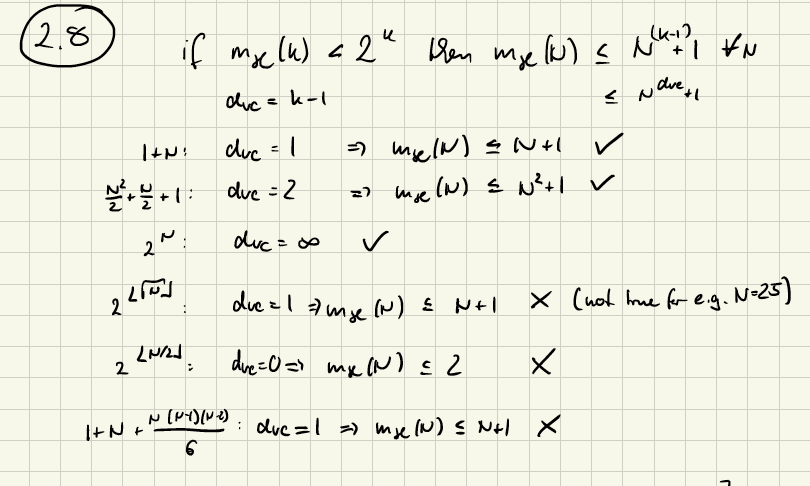 2.8
if m_ℋ(k) < 2^k then m_ℋ(N) ≤ N^(k-1) + 1 ∀N
d_vc = k-1 ≤ N^dvc + 1
1+N: d_vc = 1 ⇒ m_ℋ(N) ≤ N+1 ✓
N²/2 + N/2 + 1: d_vc = 2 ⇒ m_ℋ(N) ≤ N²+1 ✓
2^N: d_vc = ∞ ✓
2^⌊√N⌋: d_vc = 1 ⇒ m_ℋ(N) ≤ N+1 × (not true for e.g. N=25)
2^⌊N/2⌋: d_vc = 0 ⇒ m_ℋ(N) ≤ 2 ×
1+N+ N(N-1)(N-2)/6 : d_vc = 1 ⇒ m_ℋ(N) ≤ N+1 ×